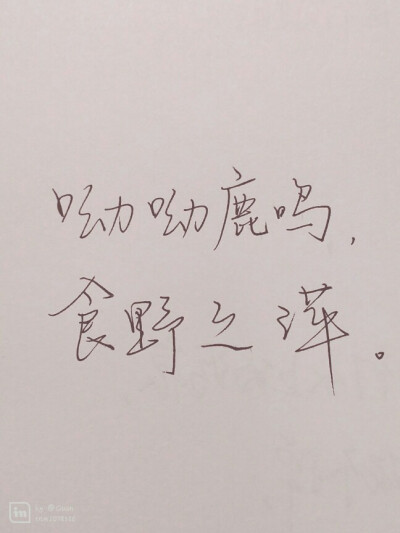 呦呦鹿鸣，
食野之苹。
in